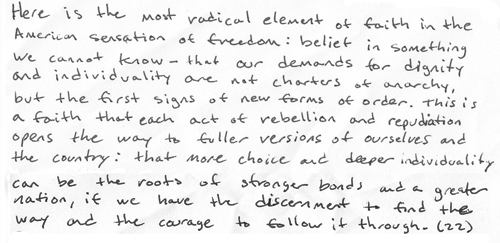 Here is the most radical element of faith in the
American sensation of freedom: belief in something
we cannot know – that our demands for dignity
and individuality are not charters of anarchy,
but the first signs of new forms of order. This is
a faith that each act of rebellion and repudiation
opens the way to fuller versions of ourselves and
the country: that more choice and deeper individuality
can be the roots of stronger bonds and a greater
nation, if we have the discernment to find the
way and the courage to follow it through. (22)